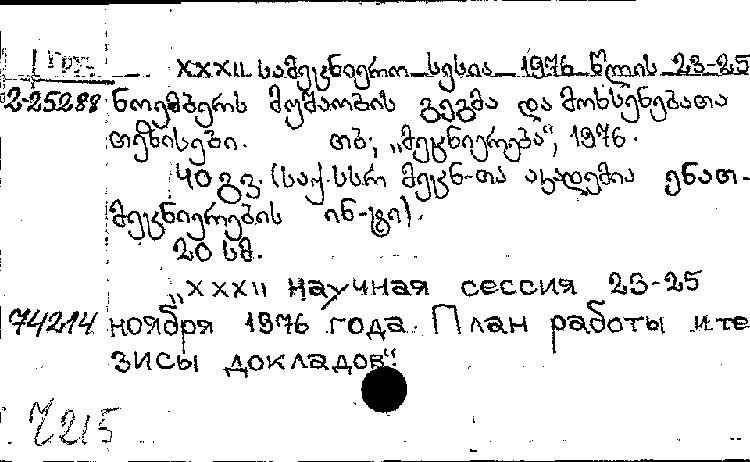 Груз.
XXXII სამეცნიერო სესია 1976 წლის 23-25
2-25288 ნოემბერს მუშაობის გეგმა და მოხსენებათა
თეზისები. თბ; „მეცნიერება“, 1976.
40 გვ. (საქ. სსრ მეცნ-თა აკადემია ენათ-
მეცნიერების ინ-ტი).
20 სმ.
„XXXII научная сессия 23-25
74214 ноября 1976 года. План работы и те
зисы докладов“.
7215